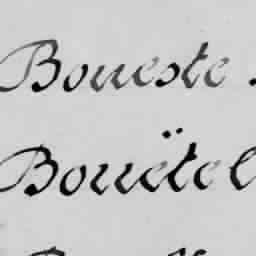 Boueste
Bouëtel